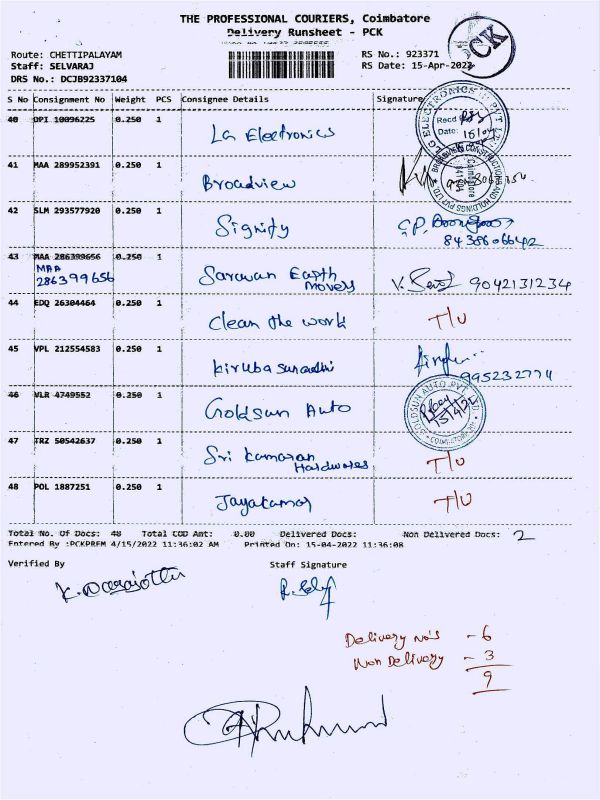 THE PROFESSIONAL COURIERS, Coimbatore
Delivery Runsheet - PCK
PCK
Route: CHETTIPALAYAM
Staff: SELVARAJ
DRS No.: DCJB92337104
RS No.: 923371
RS Date: 15-Apr-2022
S No Consignment No Weight PCS Consignee Details Signature
40 OPI 10096225 0.250 1 La Electronics
Recd
Date:
41 MAA 289952391 0.250 1 Broadview
42 SLM 293577920 0.250 1 Signify
8438606642
43 MAA 286399656 0.250 1 Saravan Earth Movers 9042131234
MAA 286399656
44 EDQ 26304464 0.250 1 Clean the work T/U
45 VPL 212554583 0.250 1
995232774
46 VLR 4749552 0.250 1 Goldsun Auto
GOLDSUN AUTO PVT LTD
COIMBATORE
47 TRZ 50542637 0.250 1 Sri Kamaran Hardwares T/U
48 POL 1887251 0.250 1 Jayakumar T/U
Total No. Of Docs: 48 Total COD Amt: 0.00 Delivered Docs: Non Delivered Docs: 2
Entered By :PCKPREM 4/15/2022 11:36:02 AM Printed On: 15-04-2022 11:36:08
Verified By Staff Signature
Delivery no's - 6
Non Delivery - 3
9